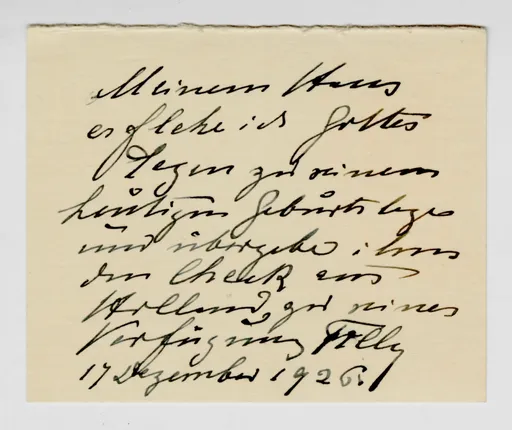 Meinem Hans
erflehe ich Gottes
Segen zu seinem
heutigen Geburtstage
und übergebe ihm
den Check aus
Holland zu seiner
Verfügung Tilly
17 Dezember 1926.